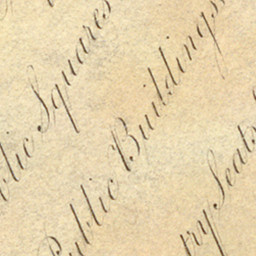 blic Squares
Public Buildings,
try Seats